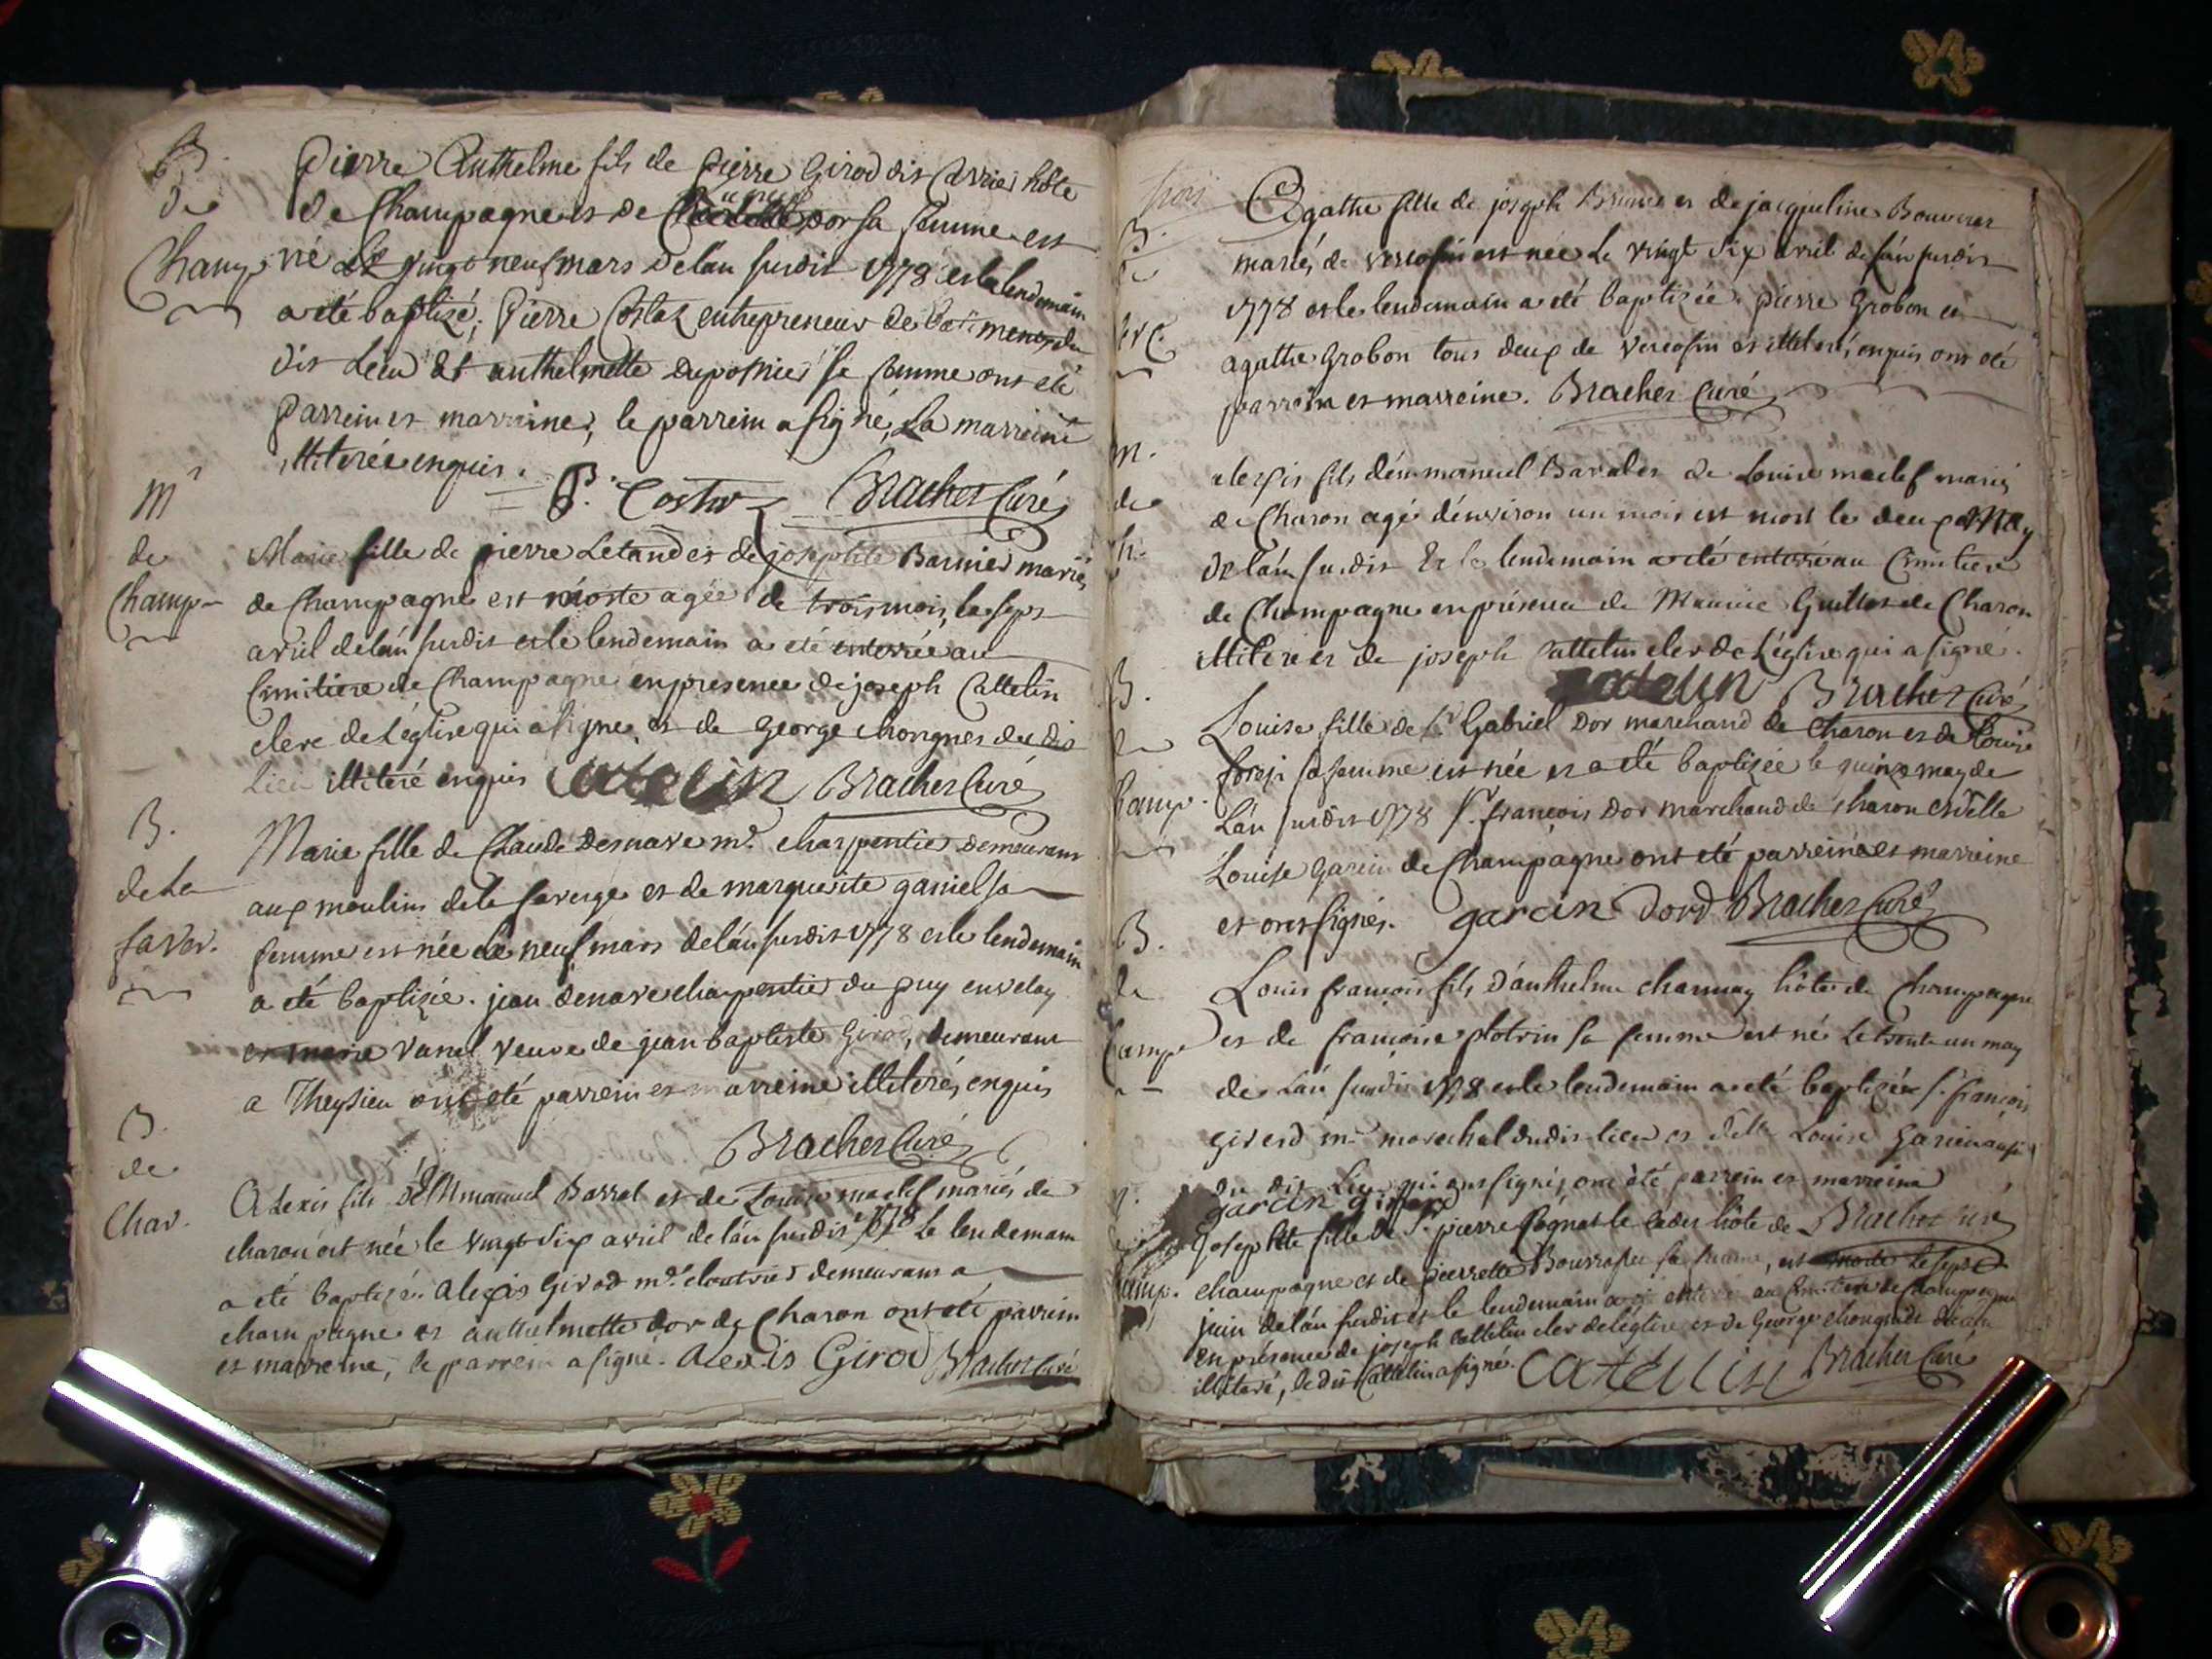 B.
de
Champ
Pierre Anthelme fils de pierre Girod dit Carrier hôte
de Champagne et de dor sa femme est
né le vingt neuf mars de l'an susdit 1778 et le lendemain
a été baptizé; Pierre Costaz entrepreneur de batimens du
dit Lieu et anthelmette dupornier sa femme ont eté
parrein et marreine, le parrein a signé, La marreine
illiterée enquis.
P. Costaz Brachet Curé
Mr
de
Champ
Marie fille de pierre Letand et de josephte Barnier mariés
de Champagne est morte agée de trois mois, le sept
avril de l'an susdit et le lendemain a eté enterrée au
Cimitiere de Champagne en presence de joseph Cattelin
clerc de Léglise qui a signé, et de george chongnes du dit
lieu illiteré enquis Catelin Brachet Curé
B.
de la
saver.
Marie fille de Claude Denave md. charpentier demeurant
aux moulins de la saverge et de marguerite ganiel sa
femme est née le neuf mars de l'an susdit 1778 et le lendemain
a eté baptizée. jean denave charpentier du puy en velay
et marie vanel veuve de jean baptiste Girod, demeurant
a Theysieu ont été parrein et marreine illiterés, enquis
Brachet Curé
B.
de
Char.
Alexis fils d'Emmanuel Barral et de Louise maclef mariés de
charon est née le vingt six avril de l'an susdit 1778 Le lendemain
a eté baptizé. alexis Girod md. cloutrier demeurant a
champagne et anthelmette dor de Charon ont eté parrein
et marreine, le parrein a signé. Alexis Girod Brachet Curé
trois
B.
de
verc.
Agathe fille de joseph Brunet et de jacqueline Bouvier
mariés de vercosin est née le vingt six avril de l'an susdit
1778 et le lendemain a eté baptizée. pierre Grobon et
agathe Grobon tous deux de vercosin et illiterés, enquis ont eté
parrein et marreine. Brachet Curé
m.
de
ch.
alexis fils d'emmanuel Baral et de Louise maclef mariés
de Charon agé d'environ un mois est mort le deux May
de l'an susdit Et le lendemain a eté enterré au Cimitiere
de Champagne en présence de Maurice Guillot de Charon
illiteré et de joseph Cattelin clerc de L'église qui a signé.
Catelin Brachet Curé
B.
de
Champ.
Louise fille de Sr. Gabriel Dor marchand de Charon et de Louise
sa femme est née et a eté baptizée le quinze may de
L'an susdit 1778 Sr. françois Dor marchand de charon et delle
Louise garcin de Champagne ont eté parrein et marreine
et ont signés. garcin Dord Brachet Curé
B.
de
Camp
Louis françois fils d'anthelme charmay hôte de Champagne
et de françoise plotrin sa femme est né Le trente un may
de Lan susdit 1778 et le lendemain a eté baptizé Sr. françois
giverd md marechal du dit lieu et delle Louise Garcin aussi
du dit Lieu qui ont signés, ont eté parrein et marreine
garcin
Brachet Curé
Camp.
Josephte fille de Sr. pierre le cadet hôte de
champagne et de pierrette sa femme, est morte le sept
juin de l'an susdit et le lendemain a eté enterrée au Cimitiere de champagne
en présence de joseph Cattelin clerc de l'église et de George chongnes
illiteré, le dit Cattelin a signé. Catellin Brachet Curé